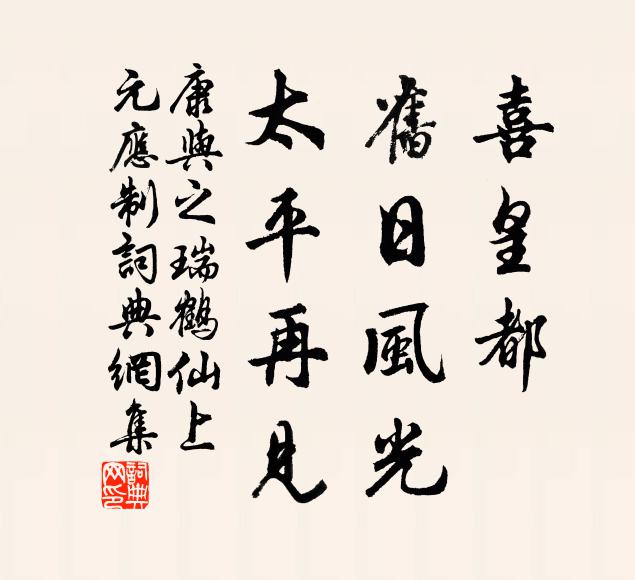 喜皇都
舊日風光
太平再見
康與之瑞鶴仙上
元應制詞典網集
詞典
网印